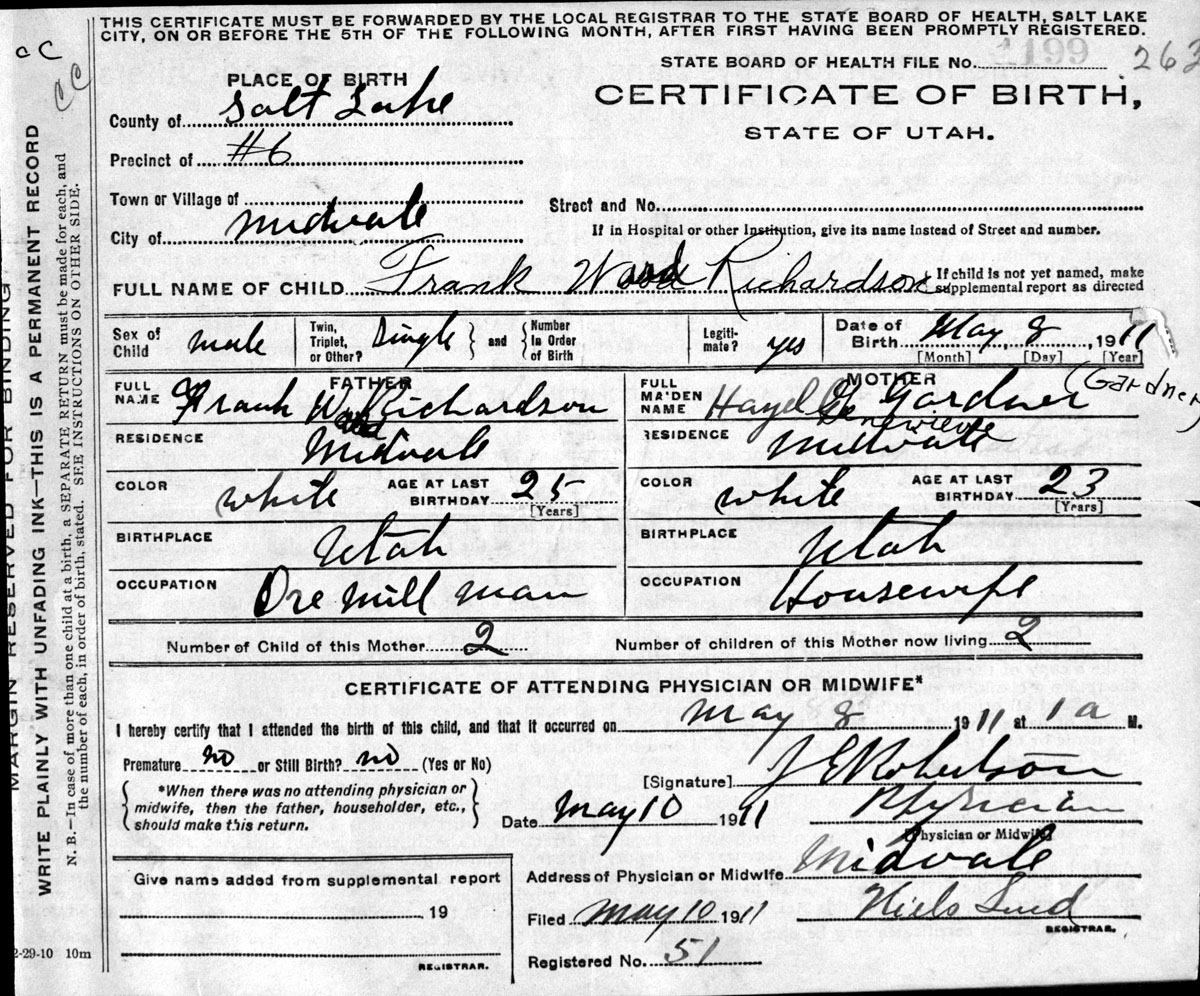 THIS CERTIFICATE MUST BE FORWARDED BY THE LOCAL REGISTRAR TO THE STATE BOARD OF HEALTH, SALT LAKE
CITY, ON OR BEFORE THE 5TH OF THE FOLLOWING MONTH, AFTER FIRST HAVING BEEN PROMPTLY REGISTERED.
CC
CC
STATE BOARD OF HEALTH FILE No. 1199 262
PLACE OF BIRTH
CERTIFICATE OF BIRTH,
STATE OF UTAH.
County of Salt Lake
Precinct of #6
Town or Village of
Street and No.
City of Midvale
If in Hospital or other Institution, give its name instead of Street and number.
FULL NAME OF CHILD Frank Wood Richardson
If child is not yet named, make
supplemental report as directed
Sex of Child male
Twin, Triplet, or Other? Single and Number In Order of Birth
Legiti-mate? yes
Date of Birth May 8, 1911
[Month] [Day] [Year]
FATHER
FULL NAME Frank W. Richardson
Wood
RESIDENCE Midvale
COLOR white AGE AT LAST BIRTHDAY 25
[Years]
BIRTHPLACE Utah
OCCUPATION Ore mill man
MOTHER
(Gardner)
FULL MAIDEN NAME Hazel G. Gardner
Genevieve
RESIDENCE Midvale
COLOR white AGE AT LAST BIRTHDAY 23
[Years]
BIRTHPLACE Utah
OCCUPATION Housewife
Number of Child of this Mother 2 Number of children of this Mother now living 2
CERTIFICATE OF ATTENDING PHYSICIAN OR MIDWIFE*
I hereby certify that I attended the birth of this child, and that it occurred on May 8 1911 at 1 a M.
Premature no or Still Birth? no (Yes or No)
[Signature] J E Robertson
*When there was no attending physician or
midwife, then the father, householder, etc.,
should make this return.
Date May 10 1911 Physician
[Physician or Midwife]
Address of Physician or Midwife Midvale
Give name added from supplemental report
, 19
REGISTRAR.
Filed May 10 1911 Niels Lind
REGISTRAR.
Registered No. 51
MARGIN RESERVED FOR BINDING
WRITE PLAINLY WITH UNFADING INK—THIS IS A PERMANENT RECORD
N. B.—In case of more than one child at a birth, a SEPARATE RETURN must be made for each, and
the number of each, in order of birth, stated. SEE INSTRUCTIONS ON OTHER SIDE.
2-29-10 10m